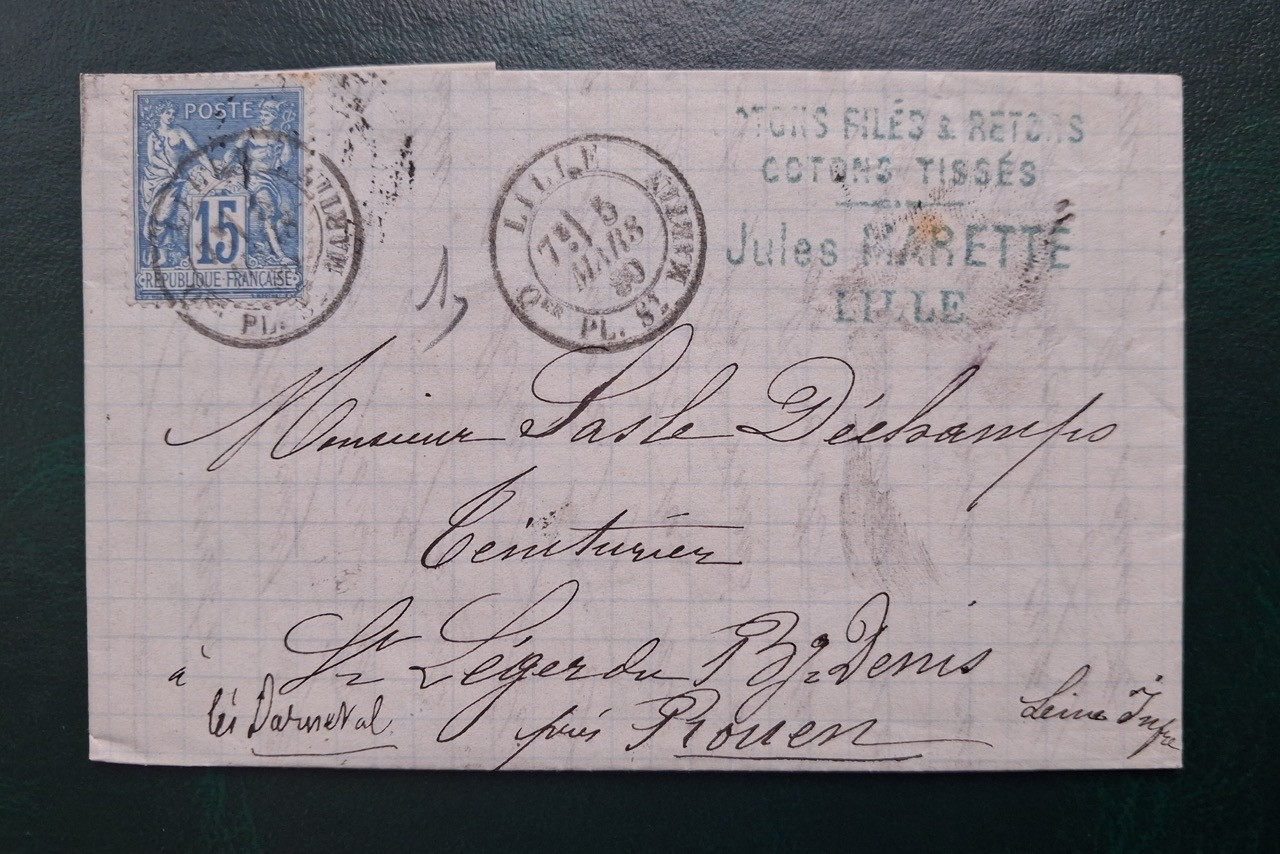 POSTE
15
RÉPUBLIQUE FRANÇAISE
PL. St MARTIN
LILLE
7E
5
MARS
80
Qer PL. St MARTIN
15
COTONS FILÉS & RETORS
COTONS TISSÉS
Jules MARETTE
LILLE
Monsieur Lasle Déchamps
Teinturier
à St Léger du Bg Denis
lès Darnetal
près Rouen
Seine Infre